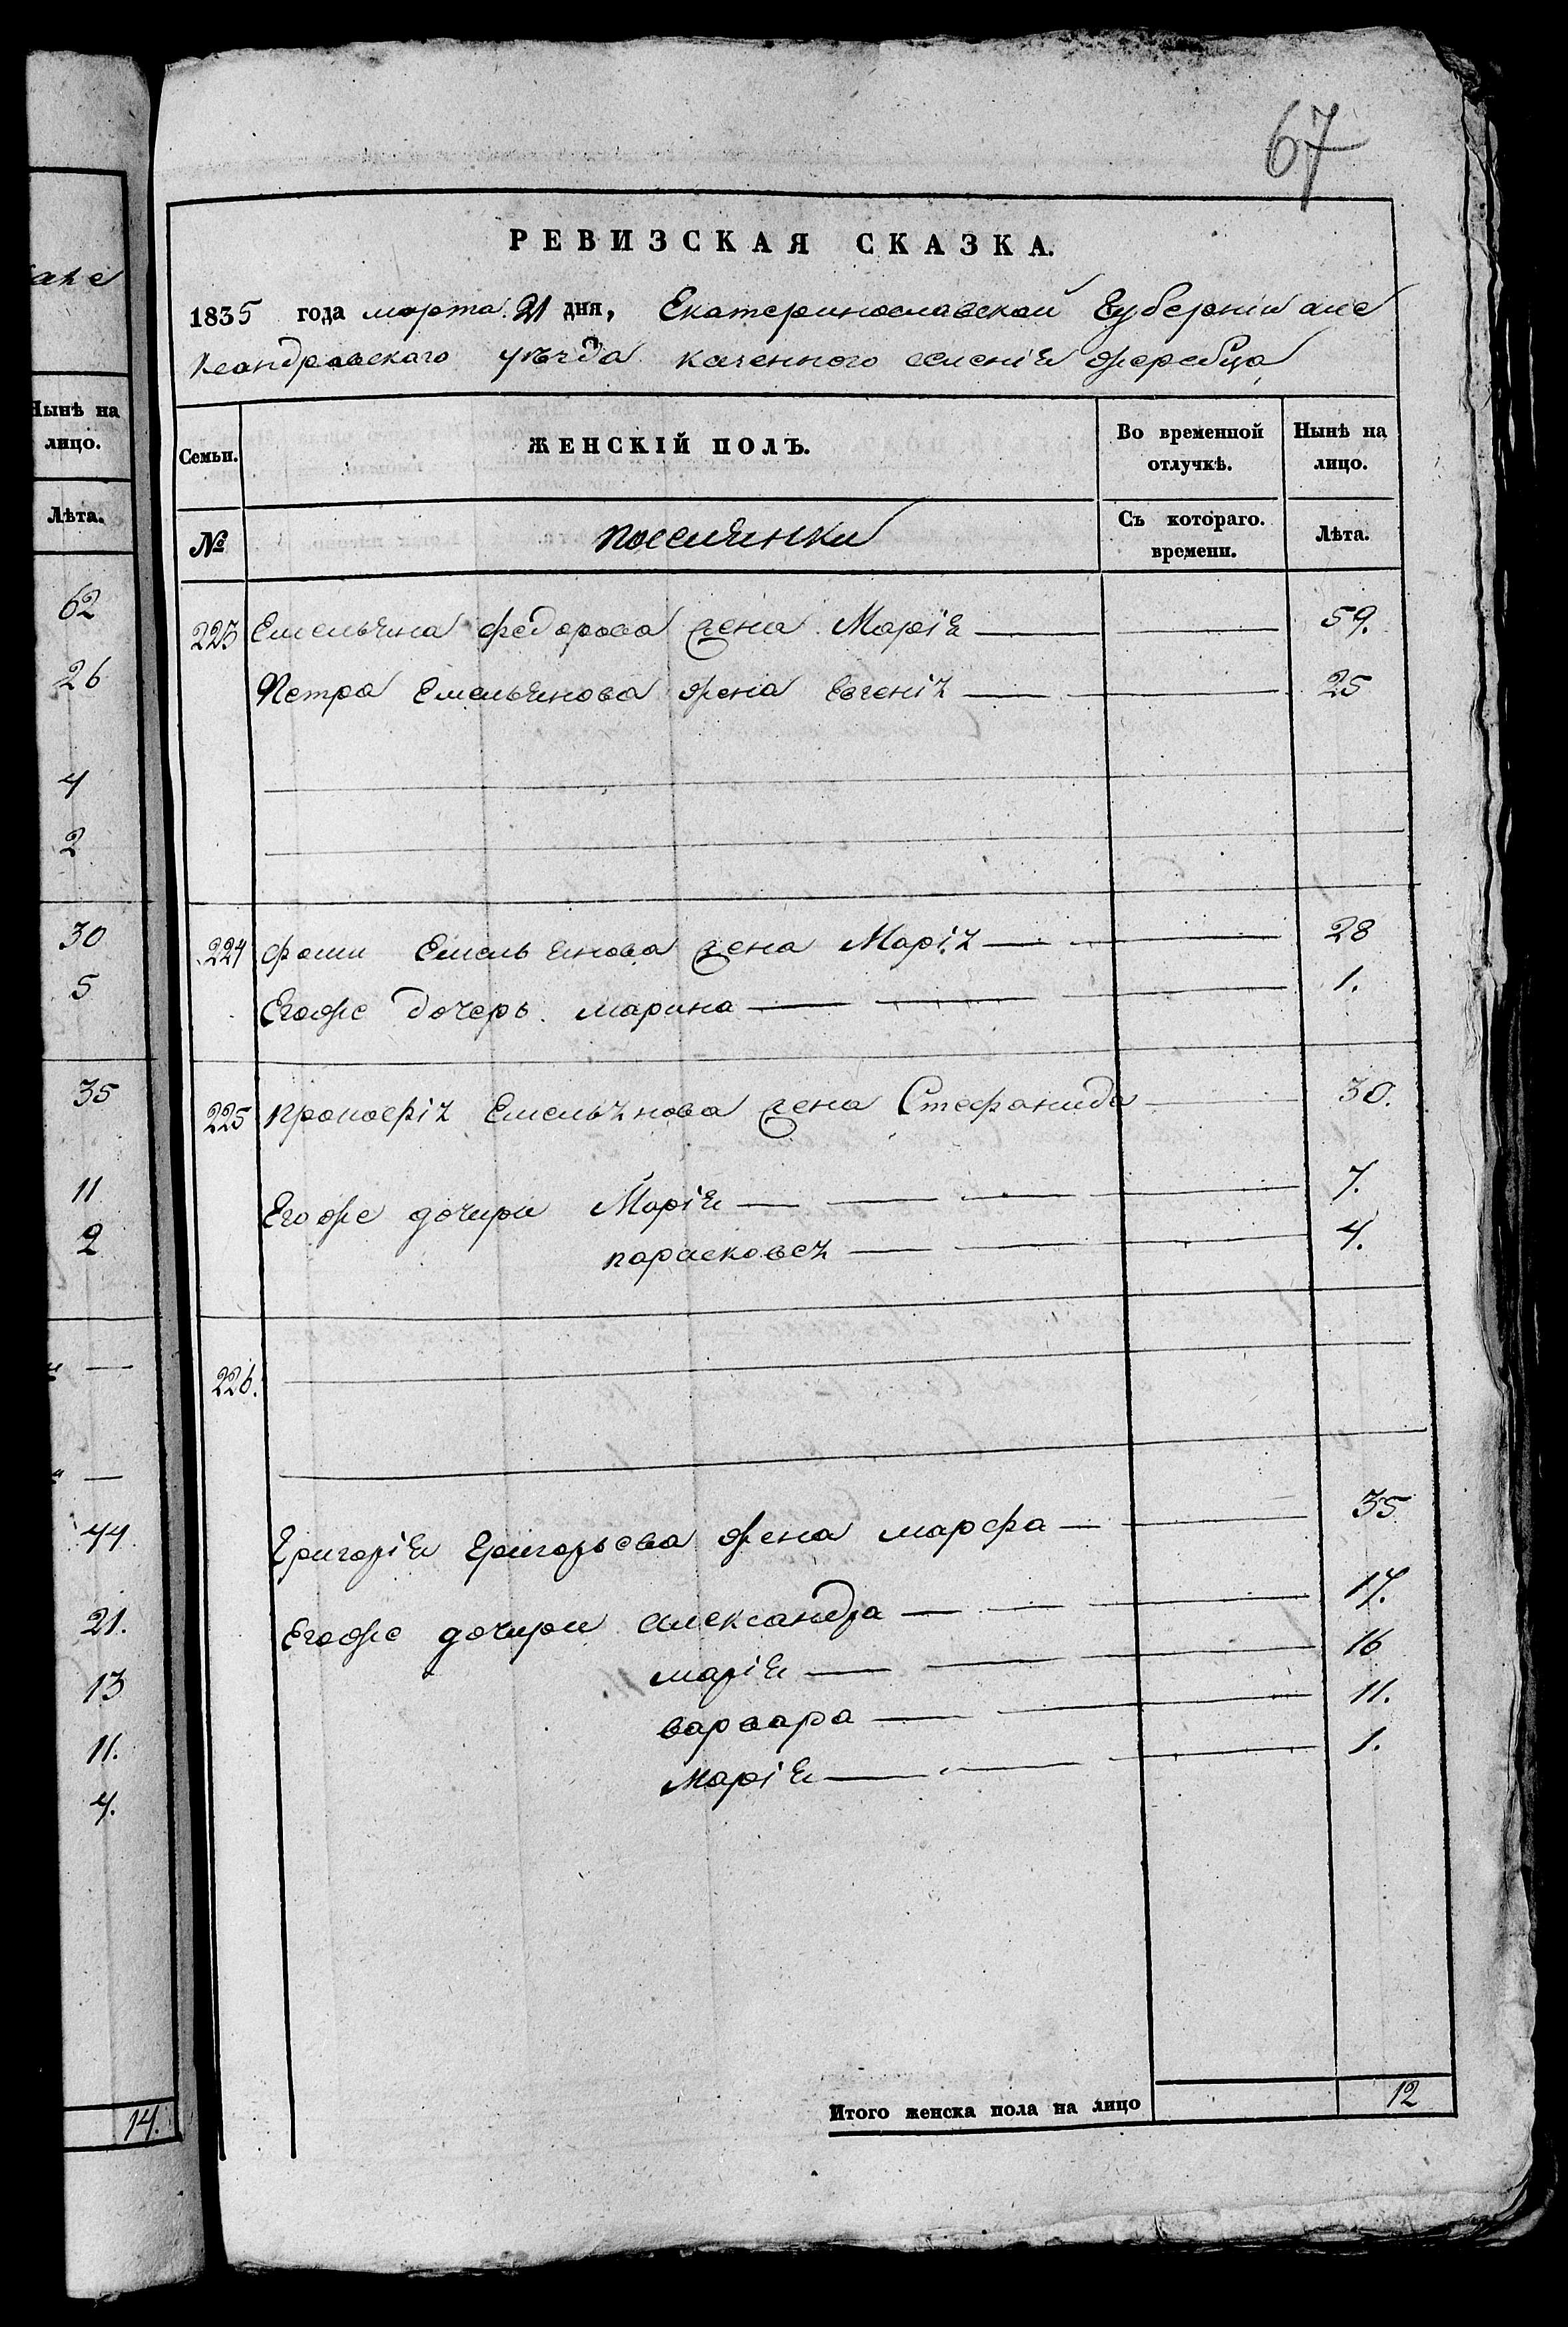 ане
Нынѣ на
лицо.
Лѣта.
62
26
4
2
30
5
35
11
2
44
21.
13
11.
4.
14.
67
РЕВИЗСКАЯ СКАЗКА.
1835 года марта 21 дня, Екатеринославской Губерніи Але
ксандровского уѣзда казенного селенія жеребца
Семьи. ЖЕНСКІЙ ПОЛЪ. Во временной отлучкѣ. Нынѣ на лицо.
№ поселянки Съ котораго. времени. Лѣта.
223 Емельяна федорова жена Марія — — 59.
Петра Емельянова жена Евгенія — — 25
224 фомы Емельянова жена Марія — — 28
Егоже дочерь марина — — — 1.
225 прокофія Емельянова жена Стефанида — 30.
Егоже дочири Марія — — — — 7.
парасковея — — — 4.
226.
Григорія Григорьева жена марфа — — 35
Егоже дочири александра — — — 17.
марія — — — 16
варвара — — 11.
Марія — — — 1.
Итого женска пола на лицо 12